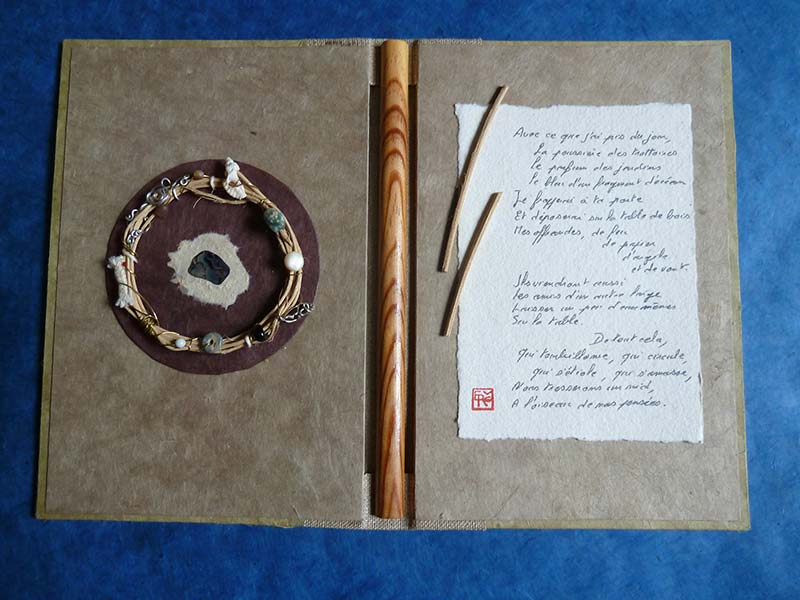 Avec ce que j'ai pris du jour,
La poussière des trottoires
Le parfum des jardins
Le bleu d'un fragment d'océan
Je frapperai à ta porte
Et déposerai sur la table de bois
Mes offrandes, de feu
de papier
d'argile
et de vent.
Ils viendront aussi
Les d'un autre
Laisser un peu d'eux mêmes
Sur la table.
De tout cela,
Qui tourbillonne, qui circule,
qui s'étiole, qui s'amasse,
Nous tresserons un nid,
A l'oiseau de nos pensées.